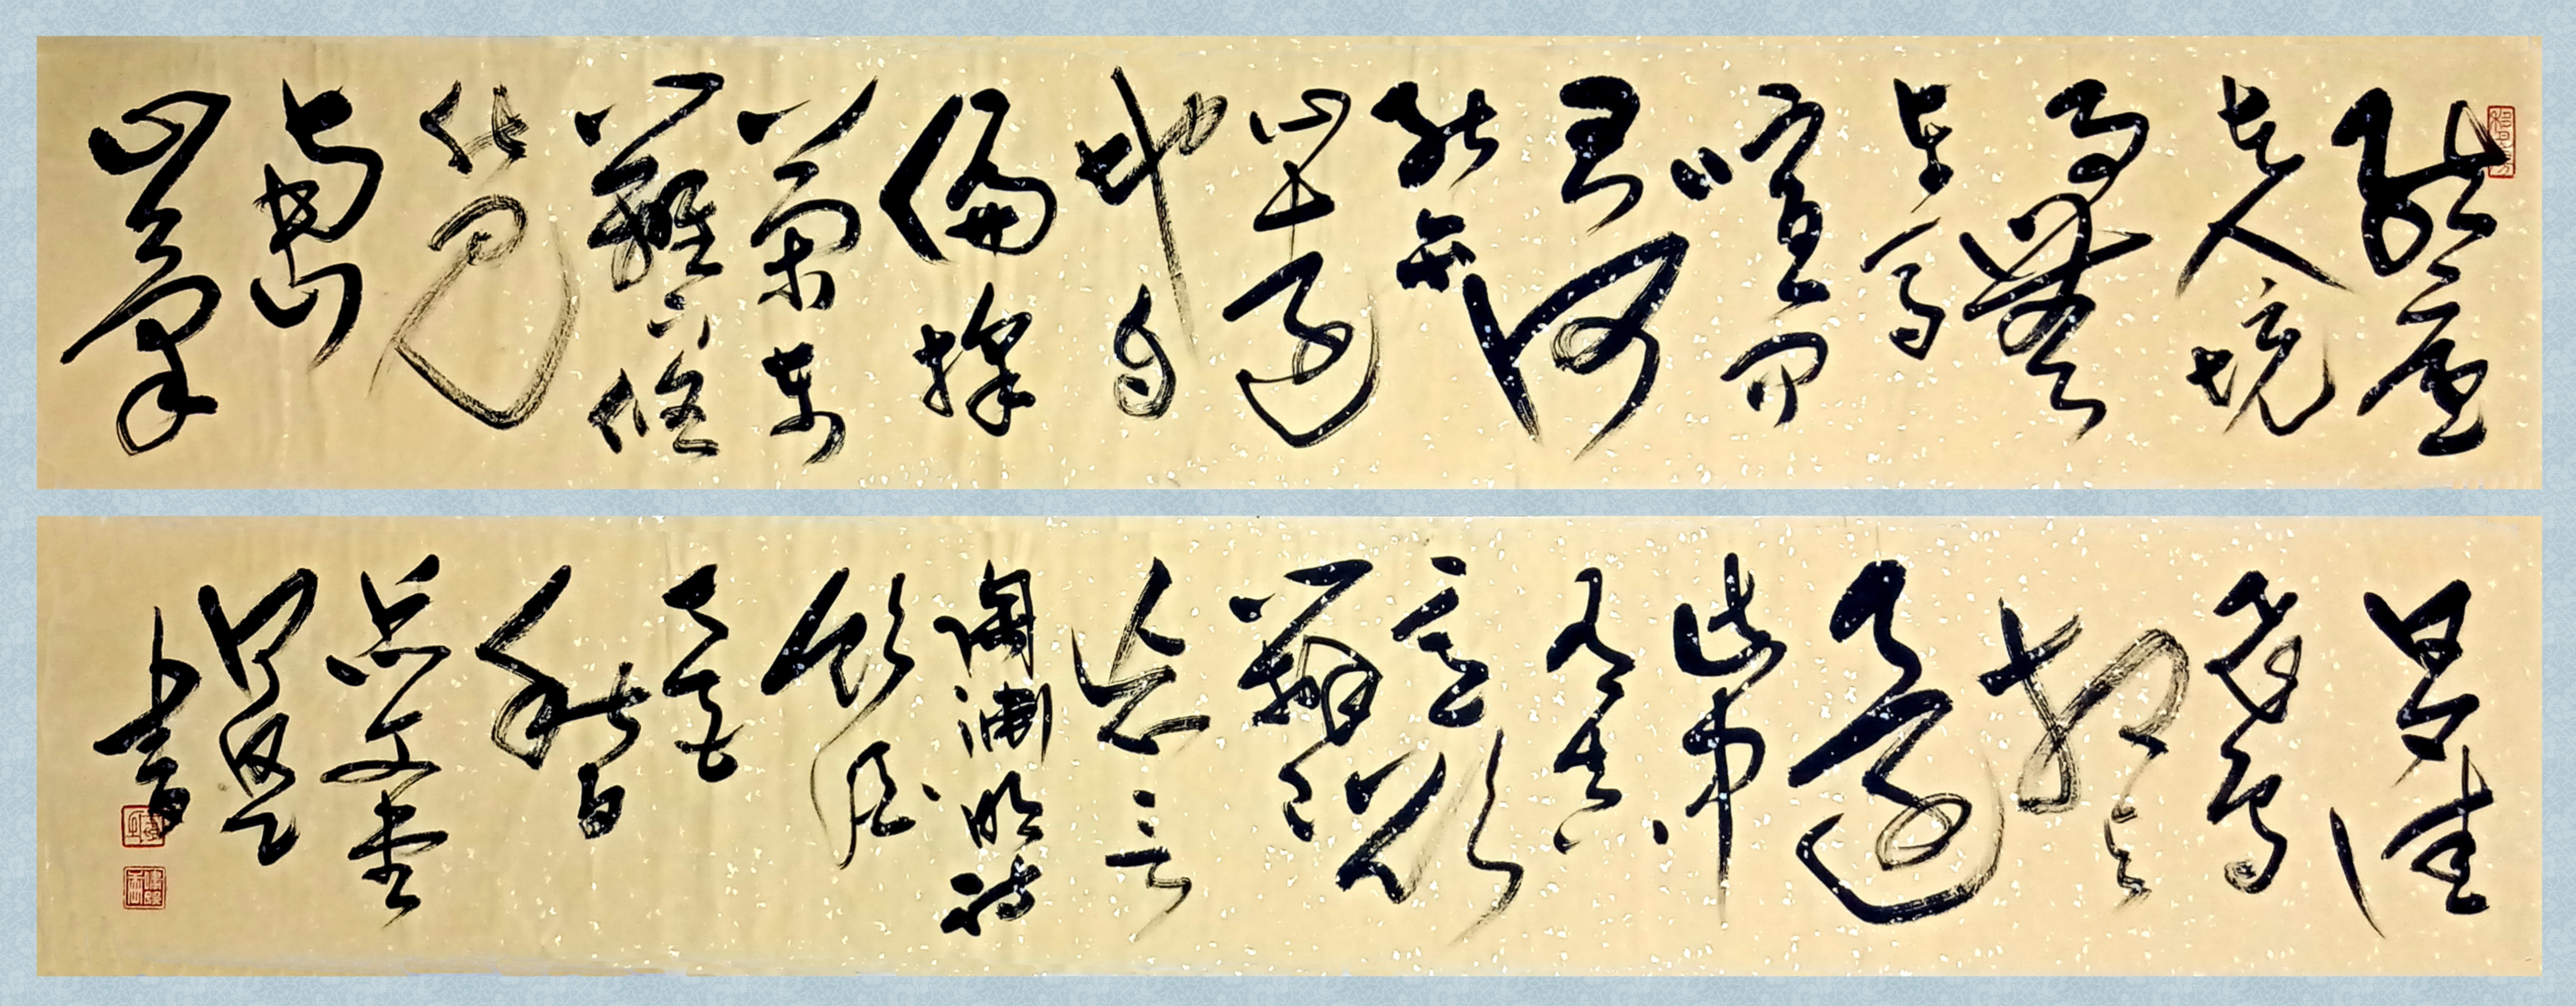 結廬
在人境
而無
車馬
喧問
君何
能尔
心遠
地自
偏採
菊東
籬下悠
然見
南山
山氣
日夕佳
飛鳥
相与
還
此中
有真
意欲
辨已
忘言
陶渊明诗
飲酒
秋
文堂
書